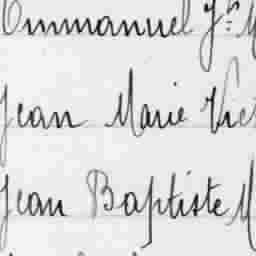 Emmanuel Jh M
Jean Marie Vict
Jean Baptiste M